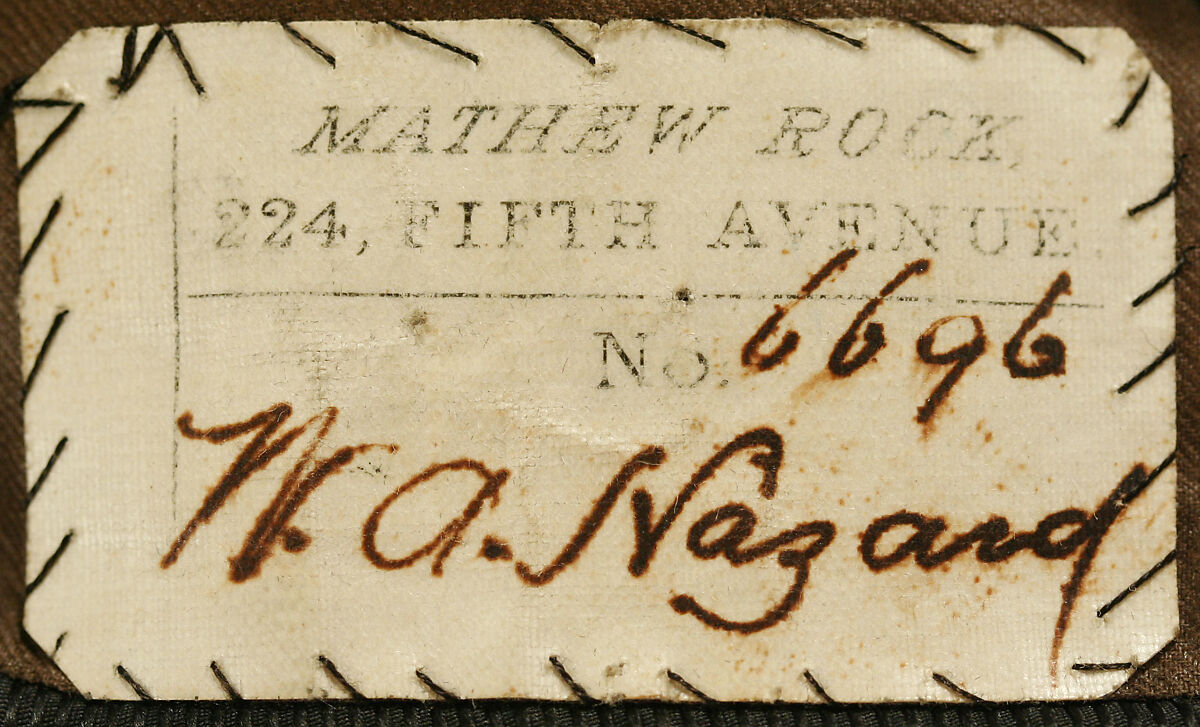 MATHEW ROCK,
224, FIFTH AVENUE.
No. 6696
W. A. Hazard